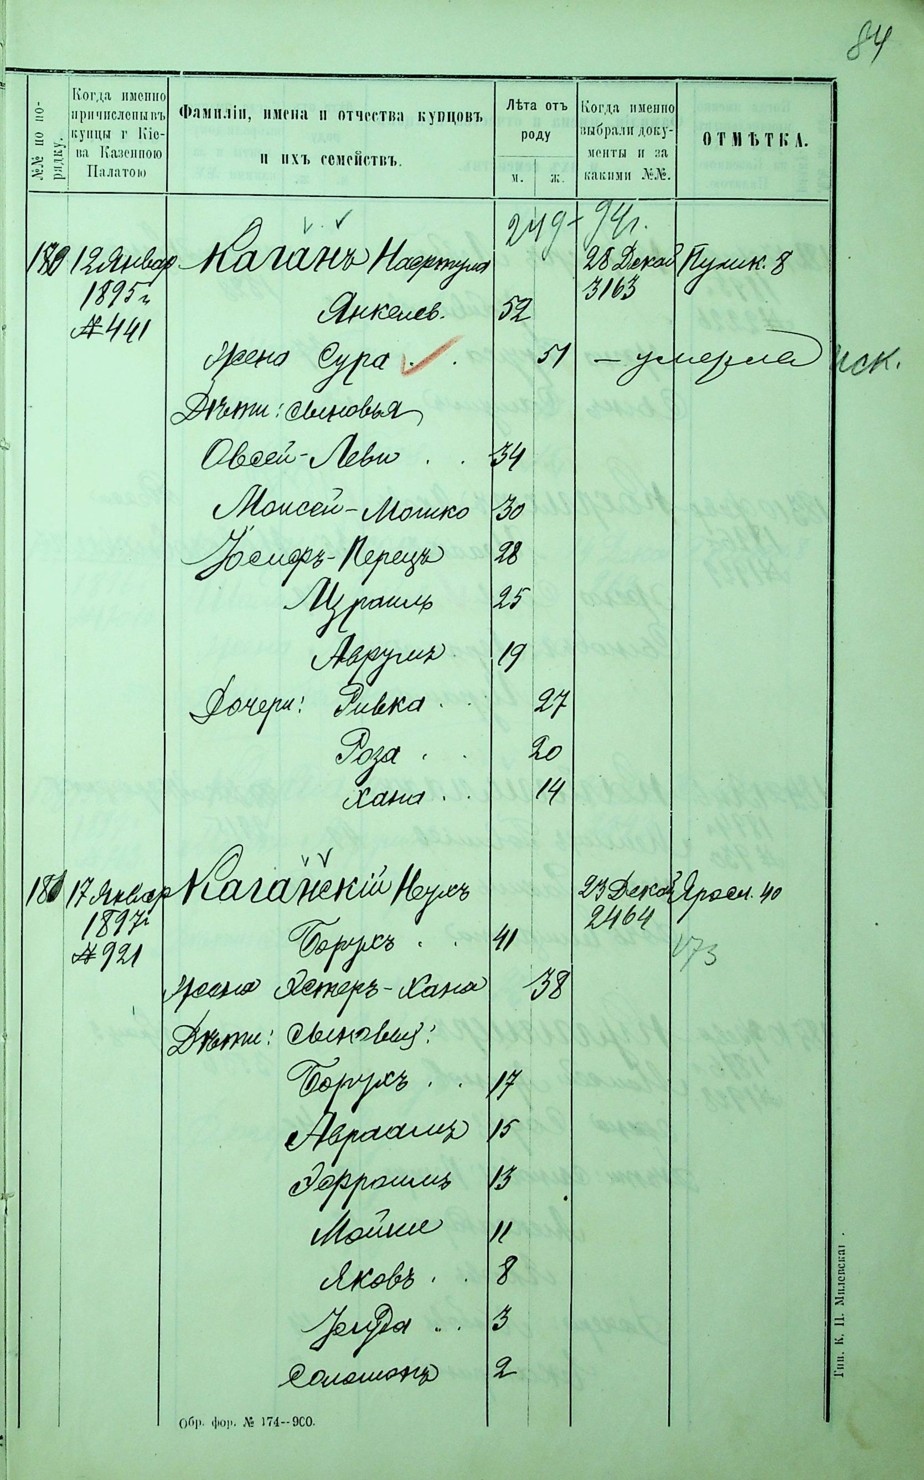 84
№№ по по-
рядку.
Когда именно
причислены въ
купцы г Кіе-
ва Казенною
Палатою
Фамиліи, имена и отчества купцовъ
и ихъ семействъ.
Лѣта отъ
роду
м. ж.
Когда именно
выбрали доку-
менты и за
какими №№.
ОТМѢТКА.
249 - 94 г.
180 12 Январ Каганъ 28 Декаб
1895 г Янкелев. 52 3163
№ 441
жена Сура . . 51 — умерла иск.
Дѣти: сыновья
Овсей-Леви . . 34
Моисей-Мошко 30
Іосифъ-Перецъ 28
Израиль 25
Аврумъ 19
Дочери: Ривка . . 27
Роза . . 20
Хана . . 14
17 Январ Каганскій Нухъ 23 Декаб Яросл. 40
1897 г 2464
№ 921 Борухъ . . 41 173
жена Эстеръ-Хана 38
Дѣти: сыновья:
Борухъ . . 17
Авраамъ 15
Эфраимъ 13
Мойше 11
Яковъ . . 8
Іегуда . . 3
Соломонъ 2
Обр. фор. № 174--900.
Тип. К. Н. Милевскаг.